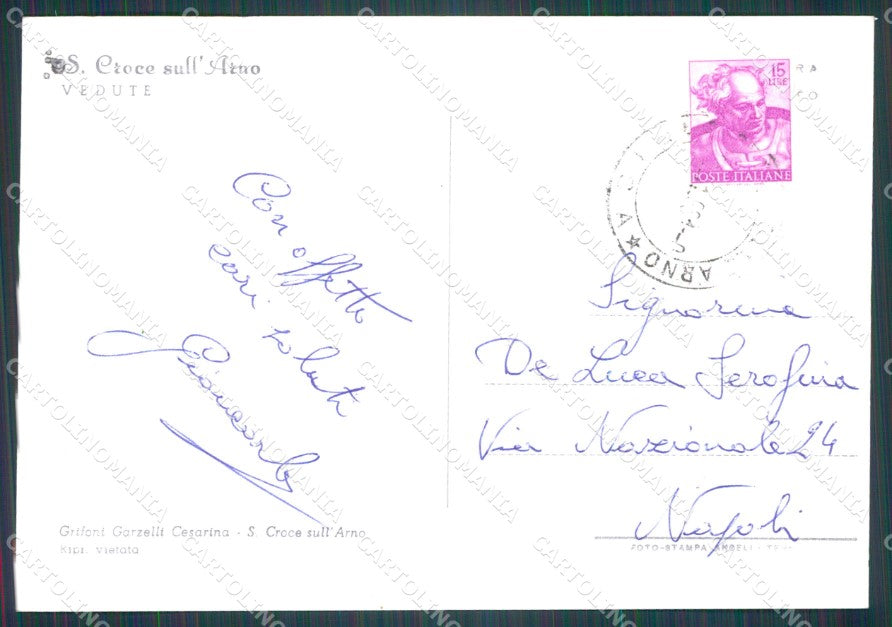 S. Croce sull'Arno
VEDUTE
15
LIRE
POSTE ITALIANE
ARNO
Con affetto
cari saluti
Giancarlo
Signorina
De Luca Serafina
Via Nazionale 24
Napoli
Grifoni Garzelli Cesarina - S. Croce sull'Arno
Ripr. vietata
FOTO-STAMPA ANGELI
CARTOLINOMANIA